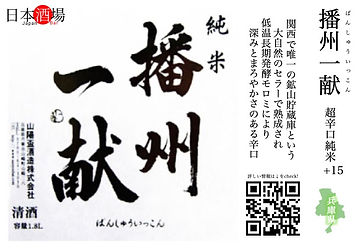 日本酒場
Japan Bar
純米
播州
一献
山陽盃酒造株式会社
清酒
容量1.8L
ばんしゅういっこん
ばんしゅういっこん
播州一献
超辛口純米
+15
関西で唯一の鉱山貯蔵庫という
大自然のセラーで熟成され
低温長期発酵モロミにより
深みとまろやかさのある辛口
詳しい情報はこちcheck!
兵庫県